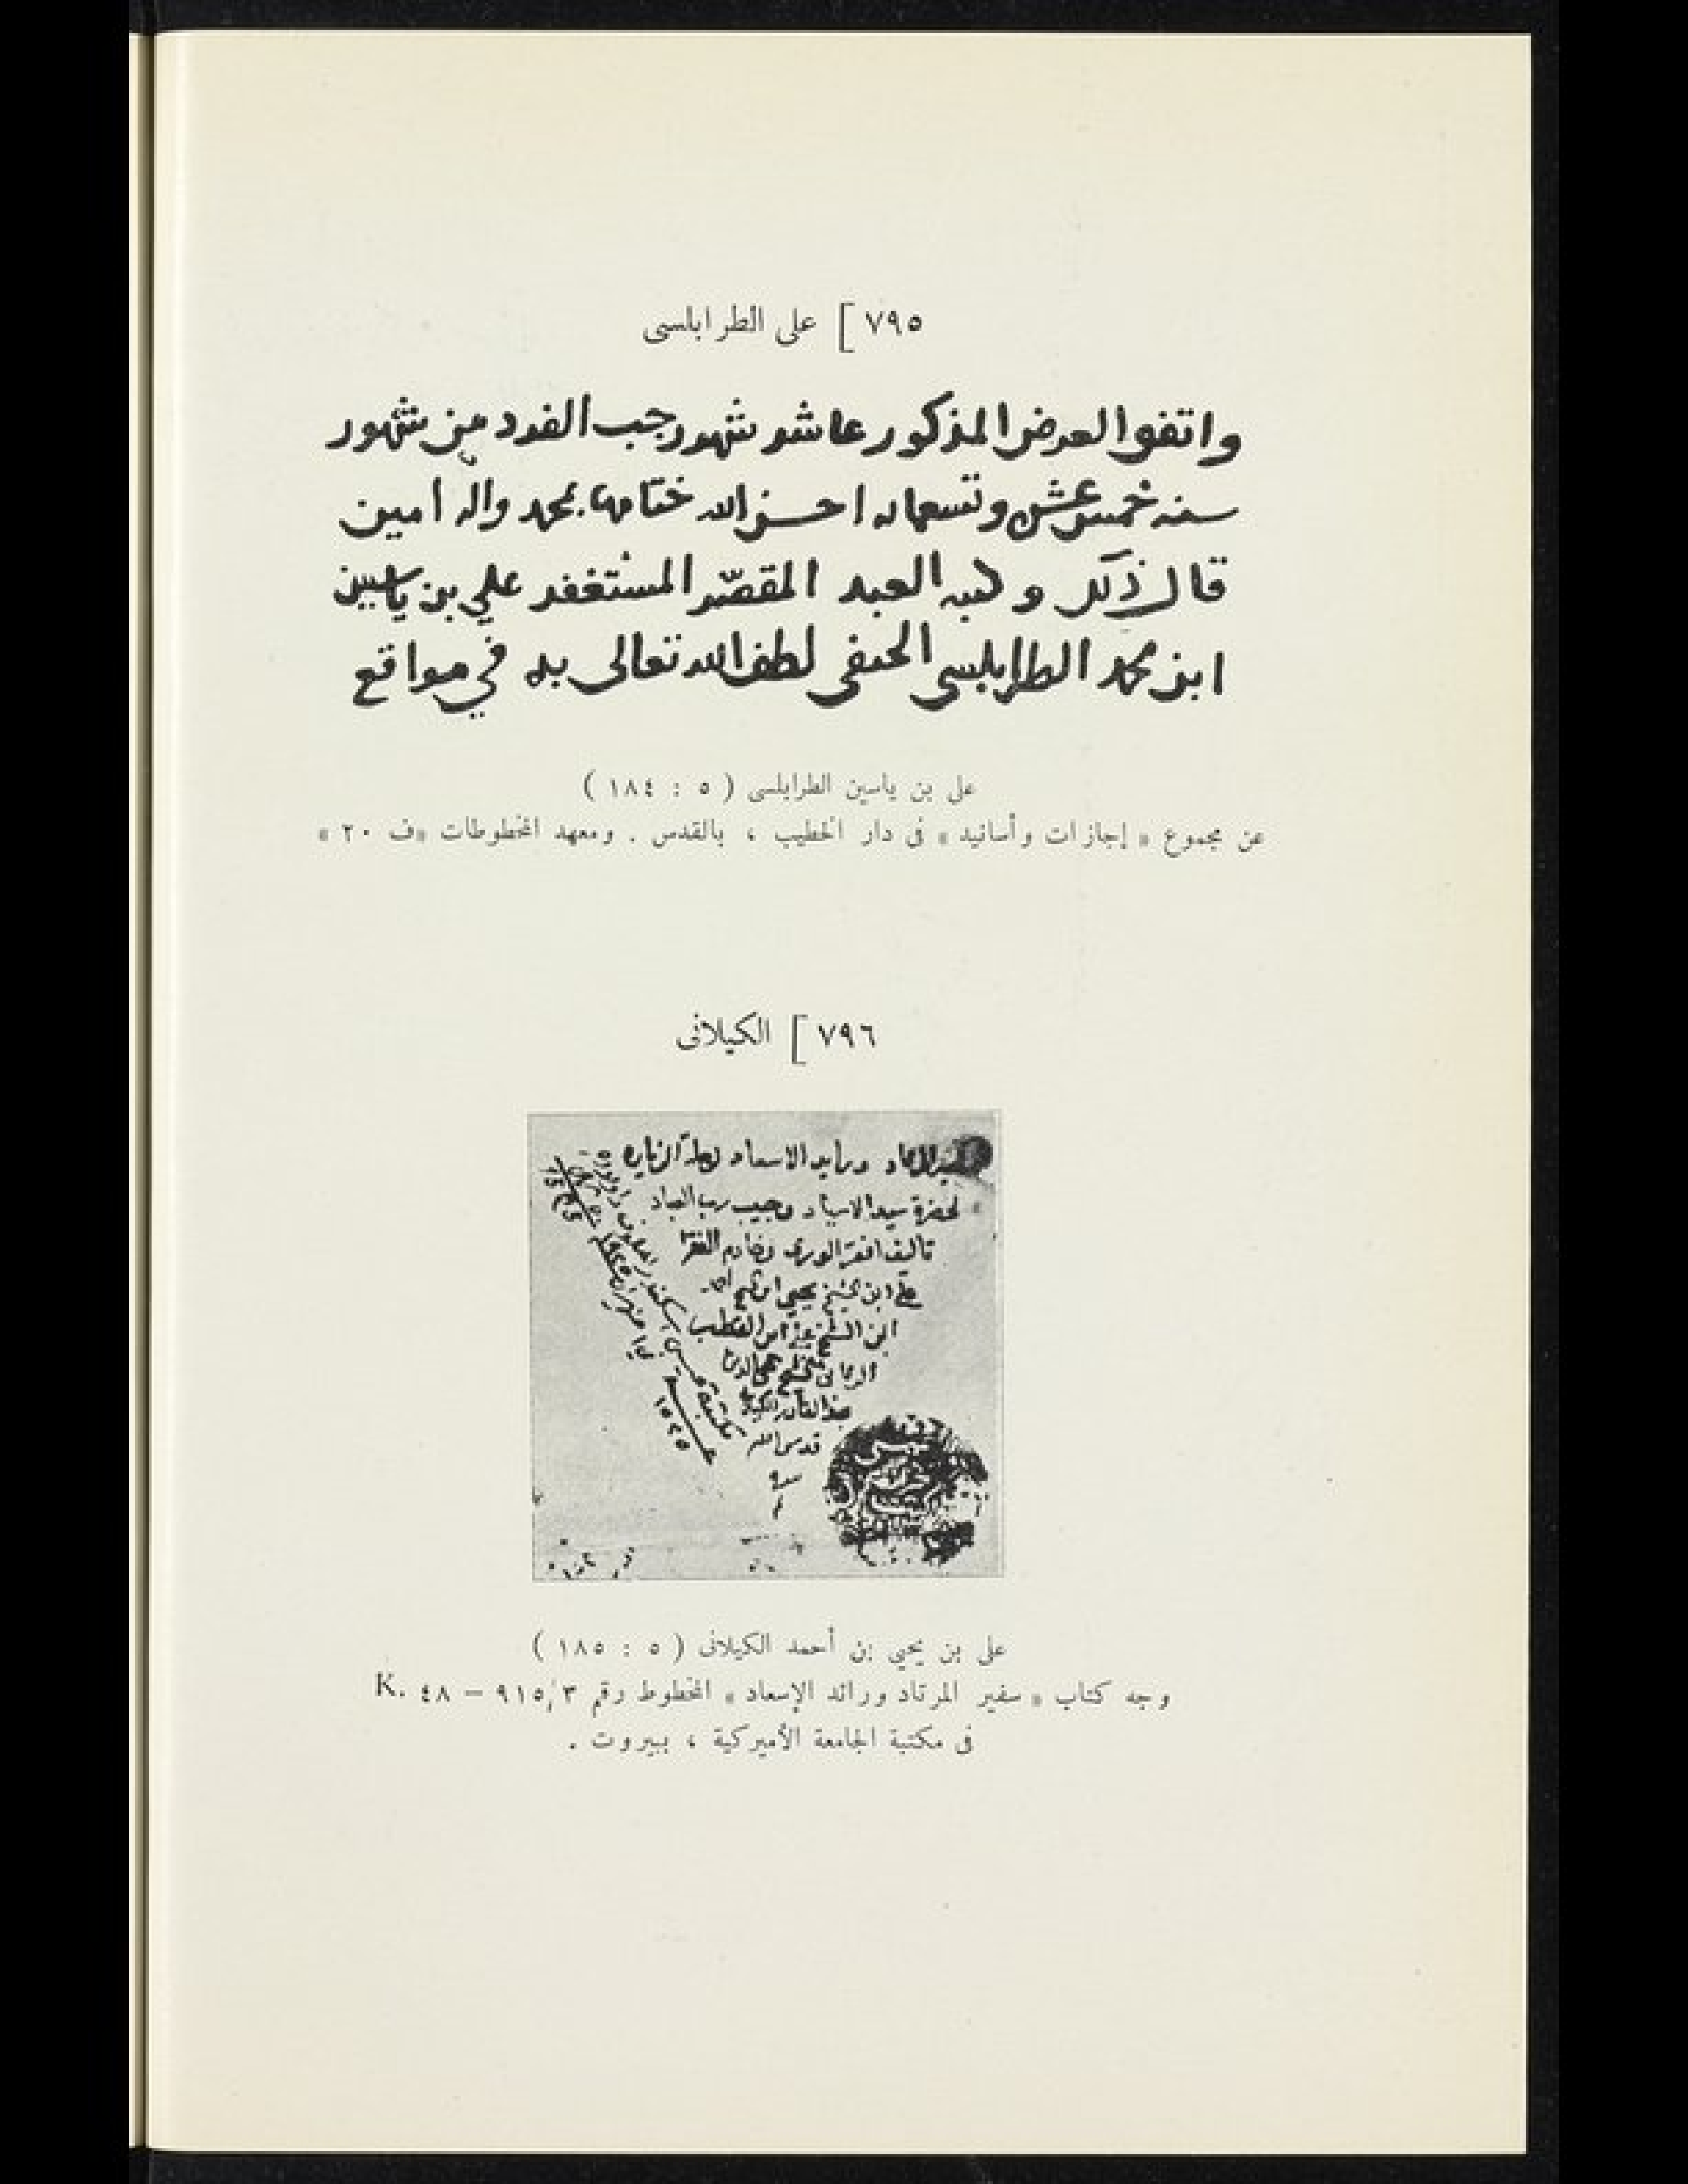 ٧٩٥ [ على الطرابلسى
واتفق العرض المذكور عاشر شهر رجب الفرد من شهور
سنه خمس عشر وتسعمايه احسن الله ختامها بمحمد واله امين
قال ذلك وكتبه العبد المقصّر المستغفر علي بن ياسين
ابن محمد الطرابلسي الحنفي لطف الله تعالى به في مواقع
على بن ياسين الطرابلسى ( ٥ : ١٨٤ )
عن مجموع « إجازات وأسانيد » فى دار الخطيب ، بالقدس . ومعهد المخطوطات «ف ٢٠ »
٧٩٦ [ الكيلانى
ورايد الاسعاد
لحضرة سيد الاسياد وحبيب رب العباد
تاليف افقر الورى وخادم الفقرا
علي ابن الشيخ يحيي ابن الشيخ احمد
ابن الشيخ علي ابن القطب
الرباني الشيخ محي الدين
عبد القادر الكيلاني
قدس الله
سره
على بن يحيى بن أحمد الكيلانى ( ٥ : ١٨٥ )
وجه كتاب « سفير المرتاد ورائد الإسعاد » المخطوط رقم ٩١٥/٣ – ٤٨ .K
فى مكتبة الجامعة الأميركية ، ببيروت .